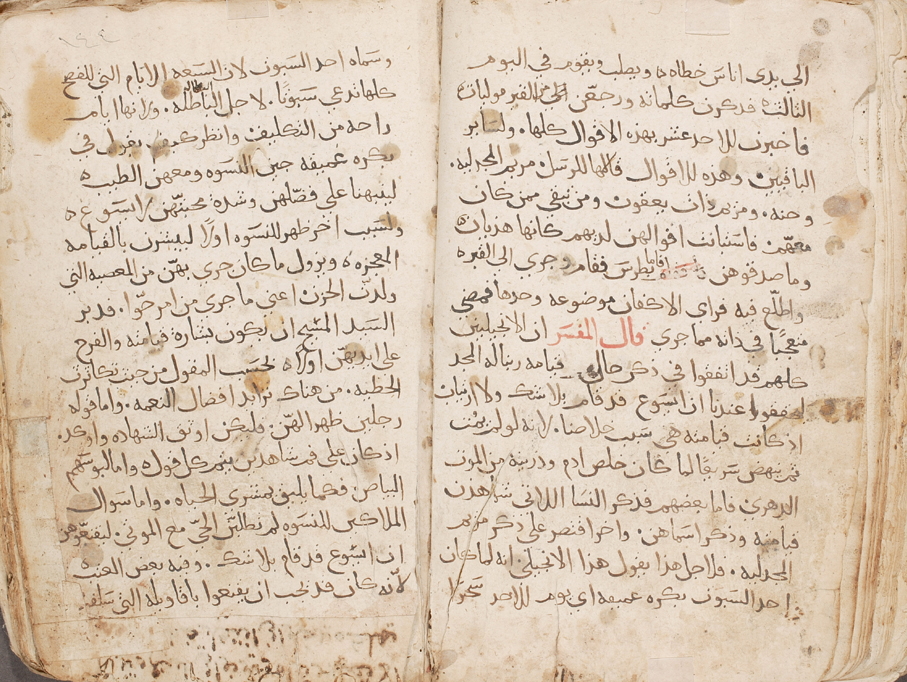 الي يدى اناس خطاه ويصلب ويقوم في اليوم
الثالث فدكرن كلماته ورجعن من القبر موليات
فاخبرن للاحد عشر بهذه الاقوال كلها. ولساير
الباقيين وهده للاقوال قالتها للرسل مريم المجدليه
وحنه. ومريم ام يعقوب ومن تبقي ممن كان
معهن فاستبانت اقوالهن لديهم كانها هديان
وما صدقوهن فاما بطرس فقام وجري الي القبره
واطلع فيه فراي الاكفان موضوعه وحدها فمضي
متعجبا في داته مما جري قال المفسر ان الانجيليين
كلهم قد اتفقوا في دكر حال قيامه ربنا له المجد
ليحققوا عندنا ان ايسوع قد قام بلا شك ولا ارتياب
اد كانت قيامته هي سبب خلاصنا. لانه لو لم يمت
ثم ينهض سريعا لما كان خلص ادم ودريته من الموت
الدهري فاما بعضهم فدكر النسا اللاتي شاهدن
قيامته ودكر اسماهن. واخر اقتصر علي دكر مريم
المجدليه. فلاجل هدا يقول هدا الانجيلي انه لما كان
احد السبوت بكره عميقه اي يوم للاحد سحرا
١٤٤
وسماه احد السبوت لان السبعه الايام التي للفصح
كلها تدعي سبوتا. لاجل البطاله. ولانها ايام
راحه من التكليف وانظر كيف يقول في
بكره عميقه جين النسوه ومعهن الطيب
لينبهنا علي فضلهن وشده محبتهن لايسوع
ولسبب اخر ظهر للنسوه اولا ليبشرن بالقيامه
المعجزه ويزول ما كان جري بهن من المعصيه التي
ولدت الحزن اعني ما جري من امر حوا. فدبر
السيد المسيح ان يكون بشاره قيامته والفرح
علي ايديهن اولا بحسب المقول من حيث تكاثرت
الخطيه. من هناك تزايد افضال النعمه. واما قوله
رجلين ظهرا لهن. فليكن اوثق الشهاده واوكد.
اد كان علي فم شاهدين يتم كل قول واما لبوسهم
البياض فكما يليق بمبشري الحياه. واما سوال
الملاكين للنسوه لم تطلبن الحي مع الموتي. ليقنعوهن
ان ايسوع قد قام بلا شك. وفيه بعض العتب
لانه كان قد يجب ان يقنعوا باقاويله التي سلفت